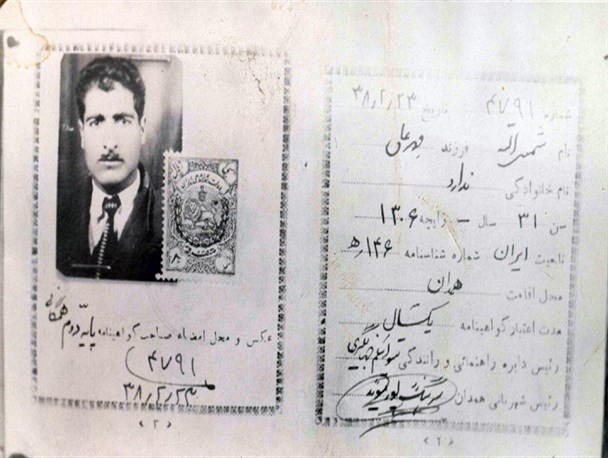 شماره ۴۷۹۱ تاریخ ۳۸/۲/۲۳
نام شمس اله فرزند
نام خانوادگی ندارد
سن ۳۱ سال - زایجه ۱۳۰۶
تابعیت ایران شماره شناسنامه ۱۴۶
محل اقامت همدان
مدت اعتبار گواهینامه یکسال
رئیس دایره راهنمائی و رانندگی
رئیس شهربانی همدان
«۲»
عکس و محل امضاء صاحب گواهینامه پایه دوم همگانی
۴۷۹۱
۳۸/۲/۲۳
«۳»